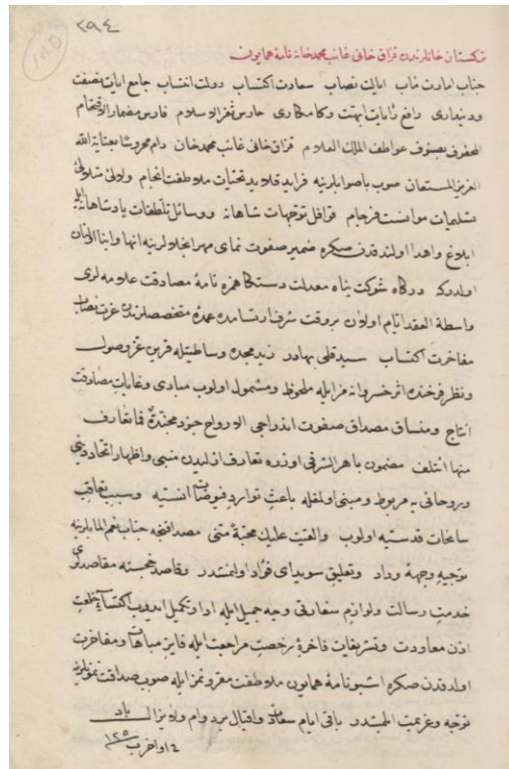 ٢٩٤
تركستان خانلرندن قزاق خانى غائب محمد خانه نامۀ همايون
جناب امارت مآب ايالت نصاب سعادت اكتساب دولت انتساب جامع ايات نصفت
و دیندارى رافع رايات ابهت و كامكارى حارس ثغر الاسلام فارس مضمار الاقتحام
المحفوف بصنوف عواطف الملك العلام قزاق خانى غائب محمد خان دام محروسا بعناية الله
العزيز المستعان صوب باصوابلرينه فرايد قلايد تحيات ملاطفت انجام و لوالئ متلالئ
تسليمات موانست فرجام قوافل توجهات شاهانه و وسائل تلطفات پادشاهانه ايله
ابلاغ و اهدا اولندقدن صكره ضمير صفوت نماى مهر انجلالرينه انها و ابنا اولنان
اولدركه درگاه شوكت پناه معدلت دستكاهمزه نامۀ مصادقت علامه لرى
واسطة العقد اتيام اولان بر وقت شرف ارتسامده عمدۀ متخصصلرندن عزت نصاب
مفاخرت اكتساب سيد قلى بهادر زيد مجده وساطتيله قرين عز وصول
و نظر فرخنده اثر خسروانه مز ايله ملحوظ و مشمول اولوب مبادى و غايات مصادقت
انتاج و منساق مصداق صفوت ازدواجى الارواح جنود مجندة فما تعارف
منها ائتلف مضمون باهر الشرفى اوزره تعارف ازليدن منبى و اظهار اتحاد دينى
و روحانى يه مربوط و مبنى اولمغله باعث توارد فيوضات انسيه و سبب تعاقب
سانحات قدسيه اولوب والقيت عليك محبة منى مصدر افتخه جناب نعم المابلرينه
توجيه وجهۀ وداد و تعليق سويداى فؤاد اولنمشدر و قاصد خجسته مقاصدلرى
خدمت رسالت و لوازم سفارتى وجه جميل ايله ادا و تكميل ايدوب اكتساى خلعت
اذن معاودت و تشريفات فاخرۀ رخصت مراجعت ايله فايز مباهات و مفاخرت
اولدقدن صكره اشبو نامۀ همايون ملاطفت مقرونمز ايله صوب صداقت نمونلرينه
توجه و عزيمت ايلمشدر باقى ايام سعادت و اقبال بر دوام و لا يزال باد
فى اواخر ب ١١٢٥